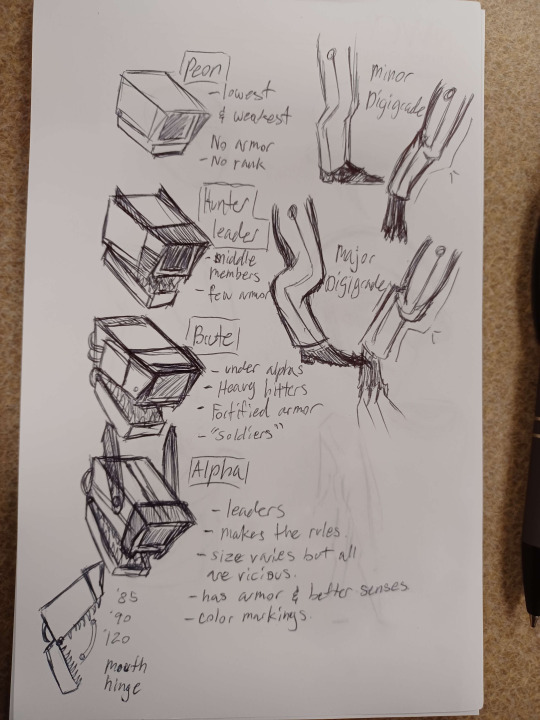 Peon
- lowest
& weakest
No armor
- No rank
minor
Digigrade
Hunter
leader
- middle
members
- few armor
Major
Digigrade
Brute
- under alphas
- Heavy bitters
- Fortified armor
- "soldiers"
Alpha
- leaders
- makes the rules.
- size varies but all
are vicious.
- has armor & better senses
- color markings.
'85
'90
'120
mouth
hinge